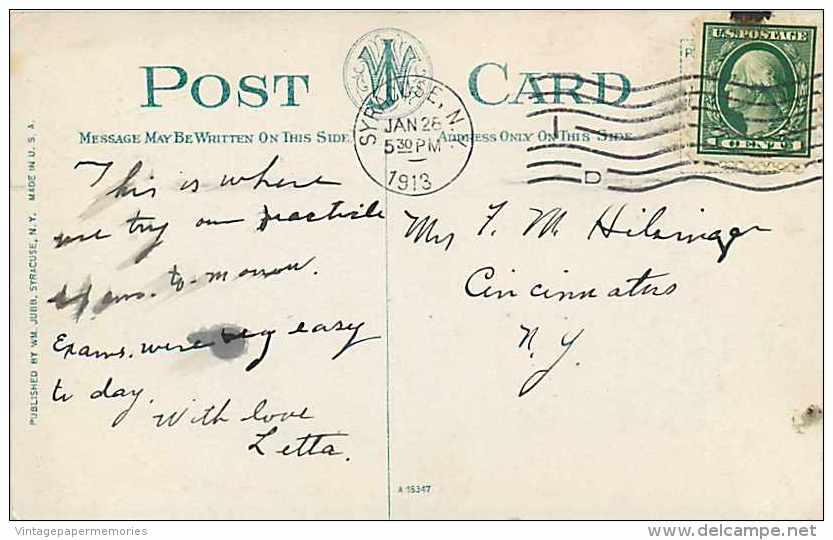 POST CARD
MESSAGE MAY BE WRITTEN ON THIS SIDE
ADDRESS ONLY ON THIS SIDE
SYRACUSE, N.Y.
JAN 28
5 30 PM
1913
D
U.S. POSTAGE
1 CENT 1
This is where
we try our practicle
exams. to-morrow.
Exams. were very easy
to day.
With love
Letta.
Mrs F. M. Hilsinger
Cincinnatus
N.Y.
PUBLISHED BY WM. JUBB, SYRACUSE, N.Y. MADE IN U.S.A.
A 15347
Vintagepapermemories
delcampe.net